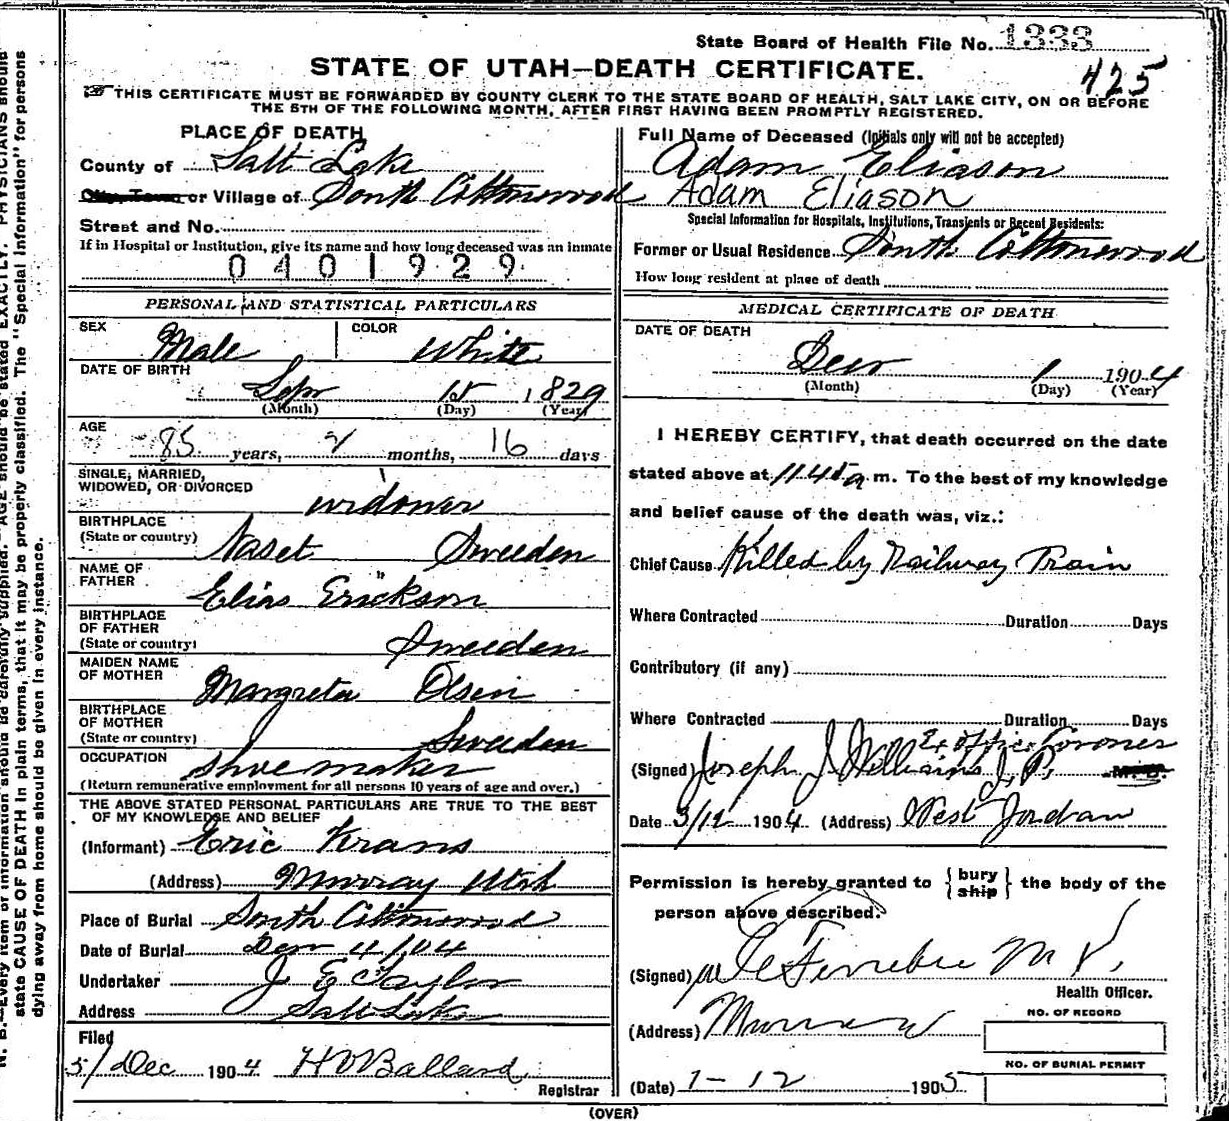 State Board of Health File No. 1333
425
STATE OF UTAH—DEATH CERTIFICATE.
THIS CERTIFICATE MUST BE FORWARDED BY COUNTY CLERK TO THE STATE BOARD OF HEALTH, SALT LAKE CITY, ON OR BEFORE
THE 5TH OF THE FOLLOWING MONTH, AFTER FIRST HAVING BEEN PROMPTLY REGISTERED.
PLACE OF DEATH
County of Salt Lake
City, Town or Village of South Cottonwood
Street and No.
If in Hospital or Institution, give its name and how long deceased was an inmate
0401929
PERSONAL AND STATISTICAL PARTICULARS
SEX Male COLOR White
DATE OF BIRTH
Sep 15 1829
(Month) (Day) (Year)
AGE
85 years, 2 months, 16 days
SINGLE, MARRIED,
WIDOWED, OR DIVORCED widower
BIRTHPLACE
(State or country) Naset Sweeden
NAME OF
FATHER Elias Erickson
BIRTHPLACE
OF FATHER
(State or country) Sweeden
MAIDEN NAME
OF MOTHER Margreta Olsen
BIRTHPLACE
OF MOTHER
(State or country) Sweeden
OCCUPATION shoemaker
(Return remunerative employment for all persons 10 years of age and over.)
THE ABOVE STATED PERSONAL PARTICULARS ARE TRUE TO THE BEST
OF MY KNOWLEDGE AND BELIEF
(Informant) Eric Krans
(Address) Murray Utah
Place of Burial South Cottonwood
Date of Burial Dec 4/04
Undertaker J E Taylor
Address Salt Lake
Filed
5/ Dec 1904 H V Ballard
Registrar
Full Name of Deceased (Initials only will not be accepted)
Adam Eliason
Adam Eliason
Special Information for Hospitals, Institutions, Transients or Recent Residents:
Former or Usual Residence South Cottonwood
How long resident at place of death
MEDICAL CERTIFICATE OF DEATH
DATE OF DEATH
Dec 1 1904
(Month) (Day) (Year)
I HEREBY CERTIFY, that death occurred on the date
stated above at 11.45 a m. To the best of my knowledge
and belief cause of the death was, viz.:
Chief Cause Killed by Railway Train
Where Contracted Duration Days
Contributory (if any)
Where Contracted Duration Days
Ex officio Coroner
(Signed) Joseph J Williams J.P. M. D.
Date 3/12 1904 (Address) West Jordan
Permission is hereby granted to { bury ship } the body of the
person above described.
(Signed) M D,
Health Officer.
(Address) Murray
NO. OF RECORD
NO. OF BURIAL PERMIT
(Date) 1-12 1905
(OVER)
N. B.—Every item of information should be carefully supplied. AGE should be stated EXACTLY. PHYSICIANS should
state CAUSE OF DEATH in plain terms, that it may be properly classified. The "Special Information" for persons
dying away from home should be given in every instance.